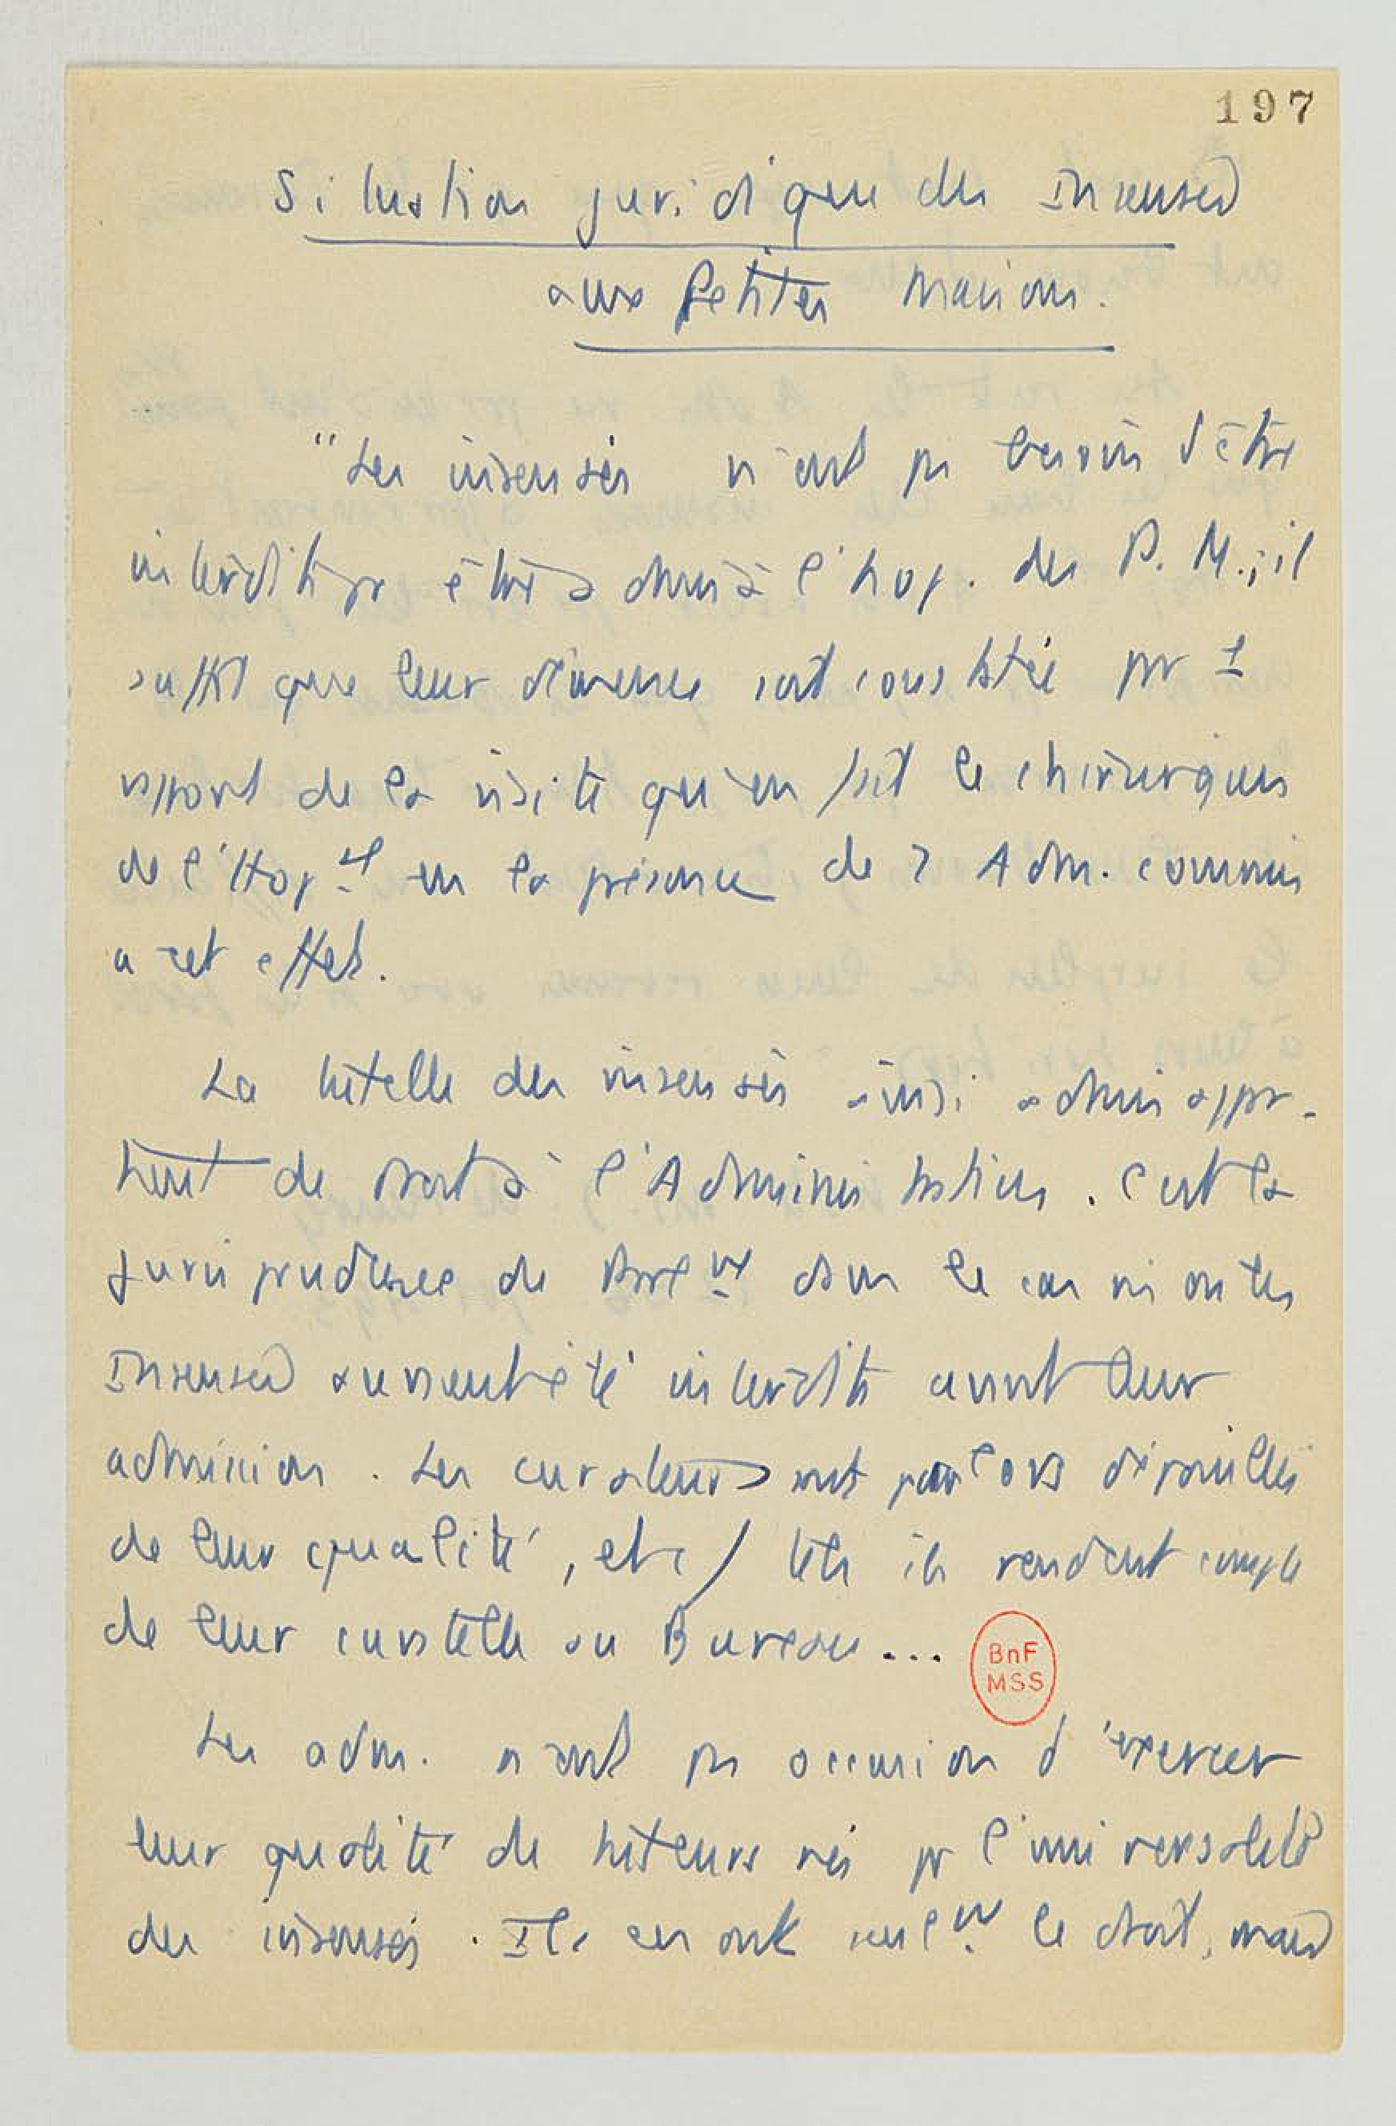 197
Situation juridique des Insensés
aux Petites Maisons.
"Les insensés n'ont pas besoin d'être
interdits pr être admis à l'hop. des P. M.; il
suffit que leur démence soit constatée par 1
rapport de la visite qu'en fait le chirurgien
de l'Hop.al en la présence de 2 Adm. commis
a cet effet.
La tutelle des insensés ainsi admis appar-
tient de droit à l'Administration. C'est la
jurisprudence du dans le cas où les
Insensés auraient été interdits avant leur
admission. Les curateurs sont pour lors dépouillés
de leur qualité, et ils rendent compte
de leur curatelle au Bureau...
BnF
MSS
Les adm. n'ont pas occasion d'exercer
leur qualité de tuteurs nés pr l'universalité
des insensés. Ils en ont seulnt le droit, mais